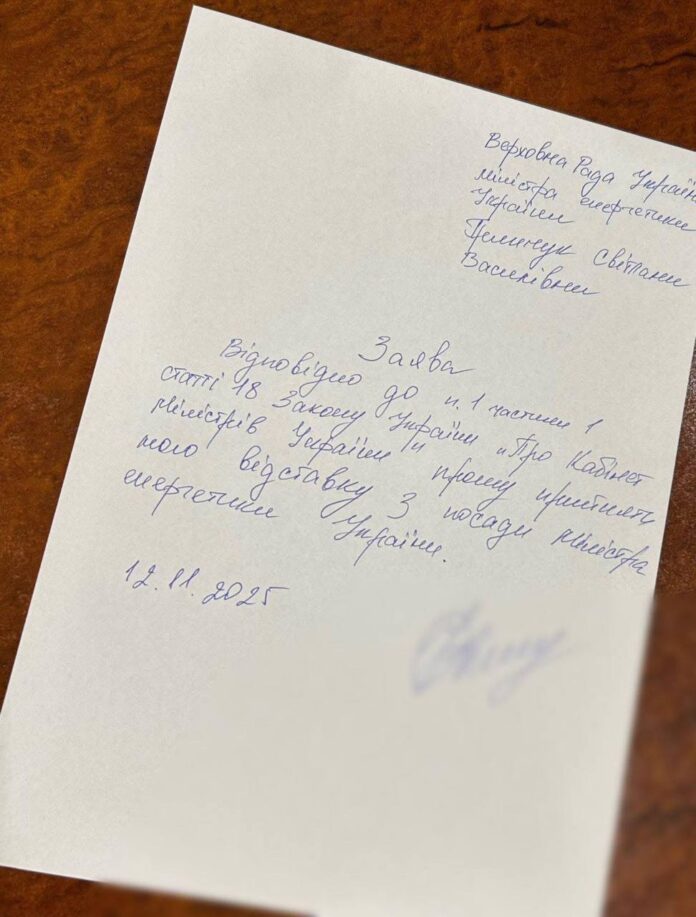 Верховна Рада Україн
Міністра енергетики
України
Гринчук Світлани
Василівни
Заява
Відповідно до п.1 частини 1
статті 18 Закону України „Про Кабінет
Міністрів України" прошу прийняти
мою відставку з посади міністра
енергетики України.
12.11.2025